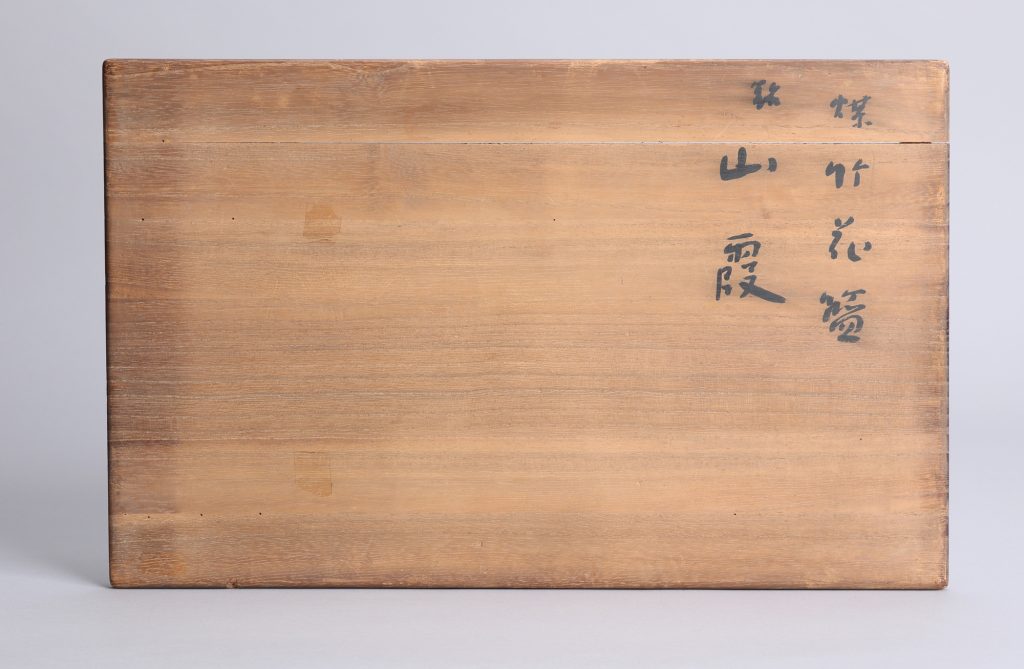 煤竹花籃
銘
山霞